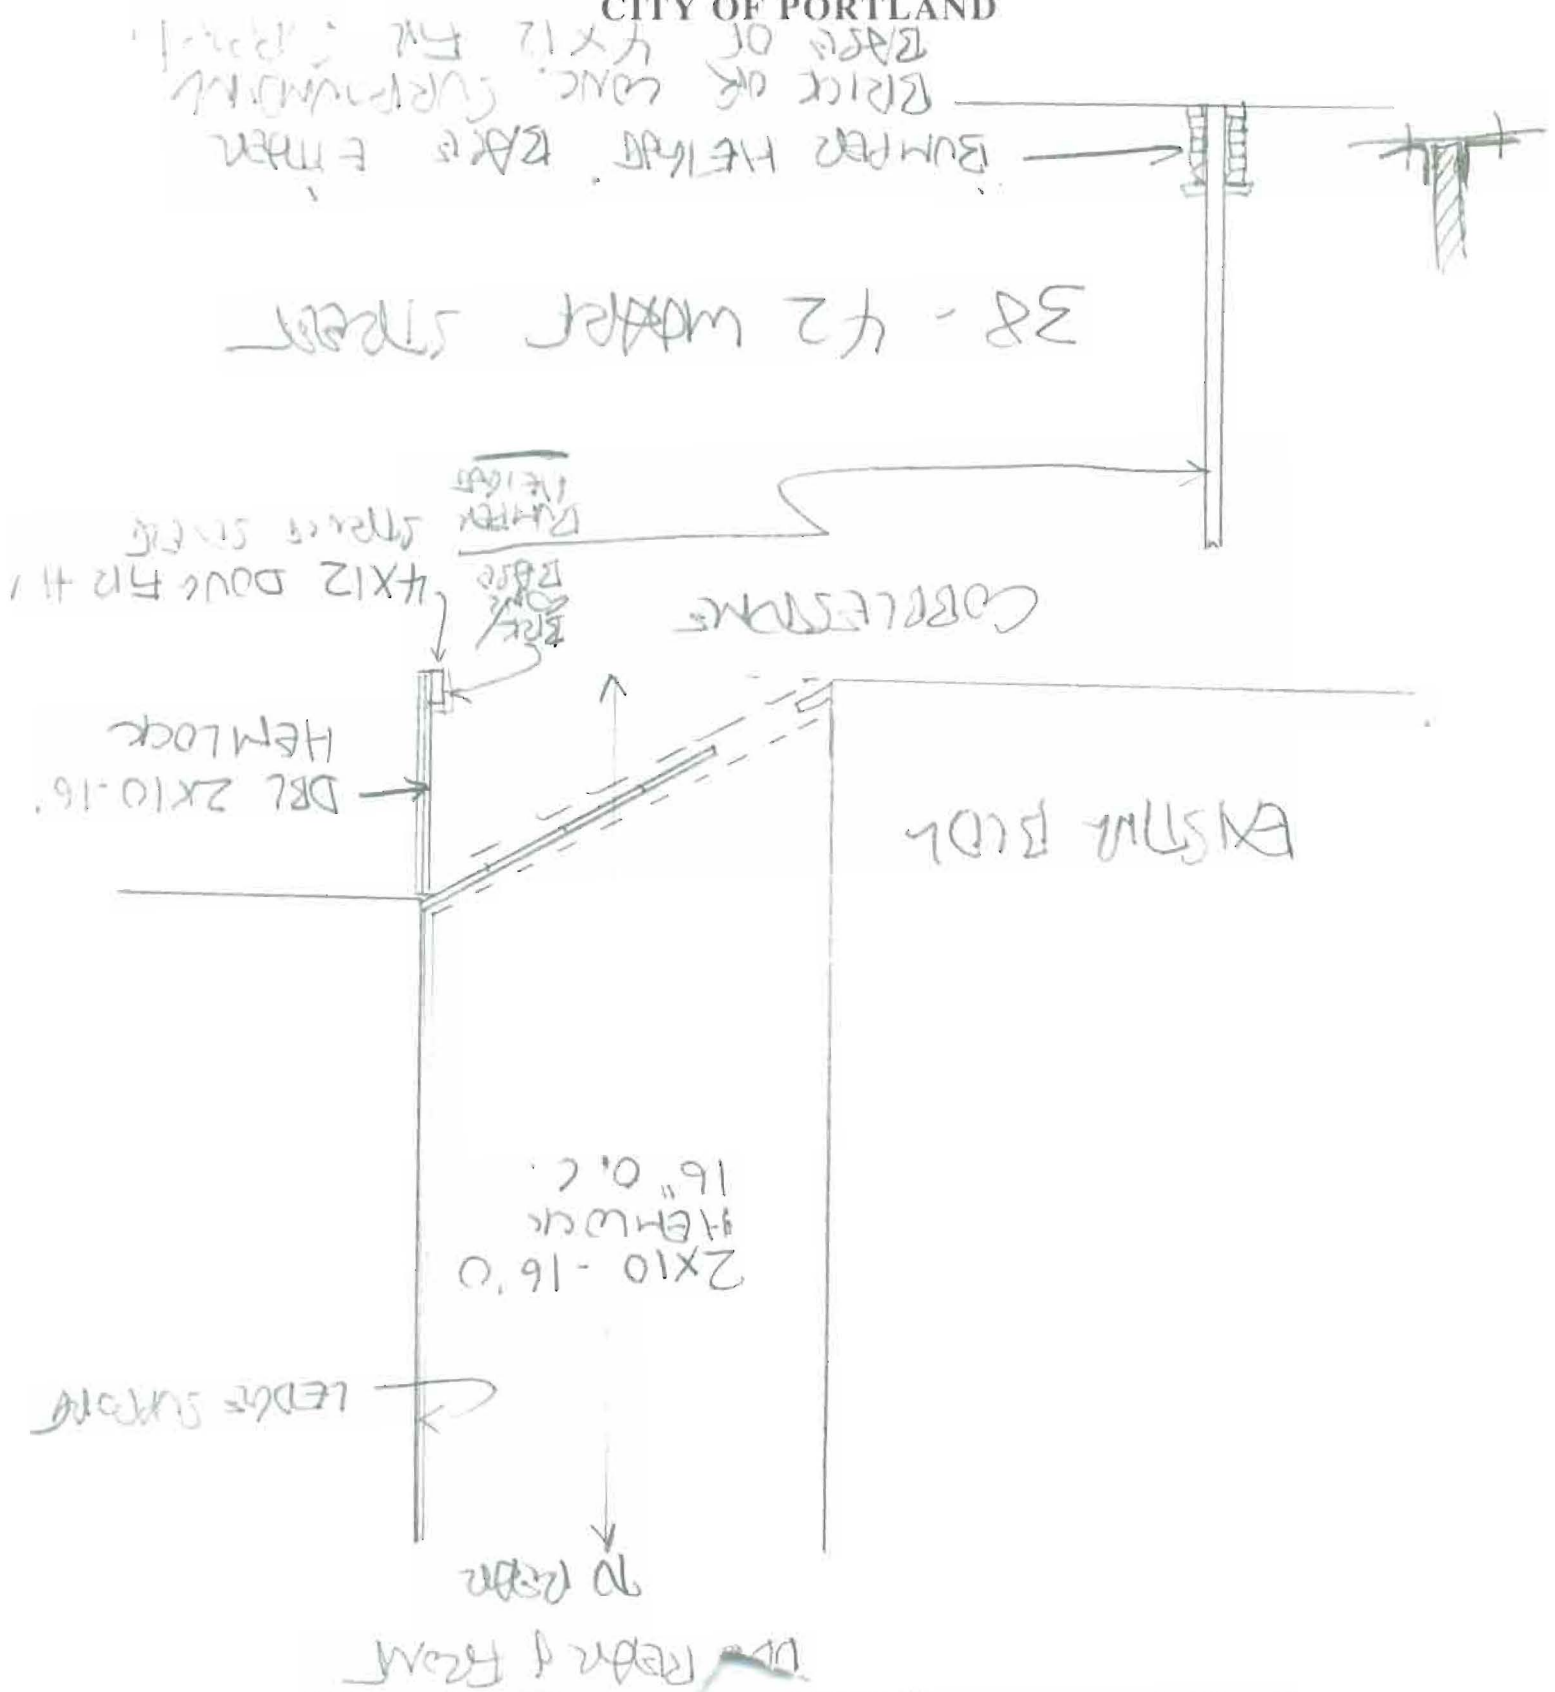 CITY OF PORTLAND
REAR & FRONT
TO REAR
LEDGE SUPPORT
2X10 - 16'0
HEMLOCK
16" O.C.
EXISTING BLDG
DBL 2X10-16'
HEMLOCK
COBBLESTONE
BRK/
CONC
BASE
BUMPER
HEIGHT
4X12 DOUG FIR #1
38 - 42 WHARF STREET
BUMPER HEIGHT BASE EITHER
BRICK OR CONC. SURROUNDING
BASE OF 4X12 FIR